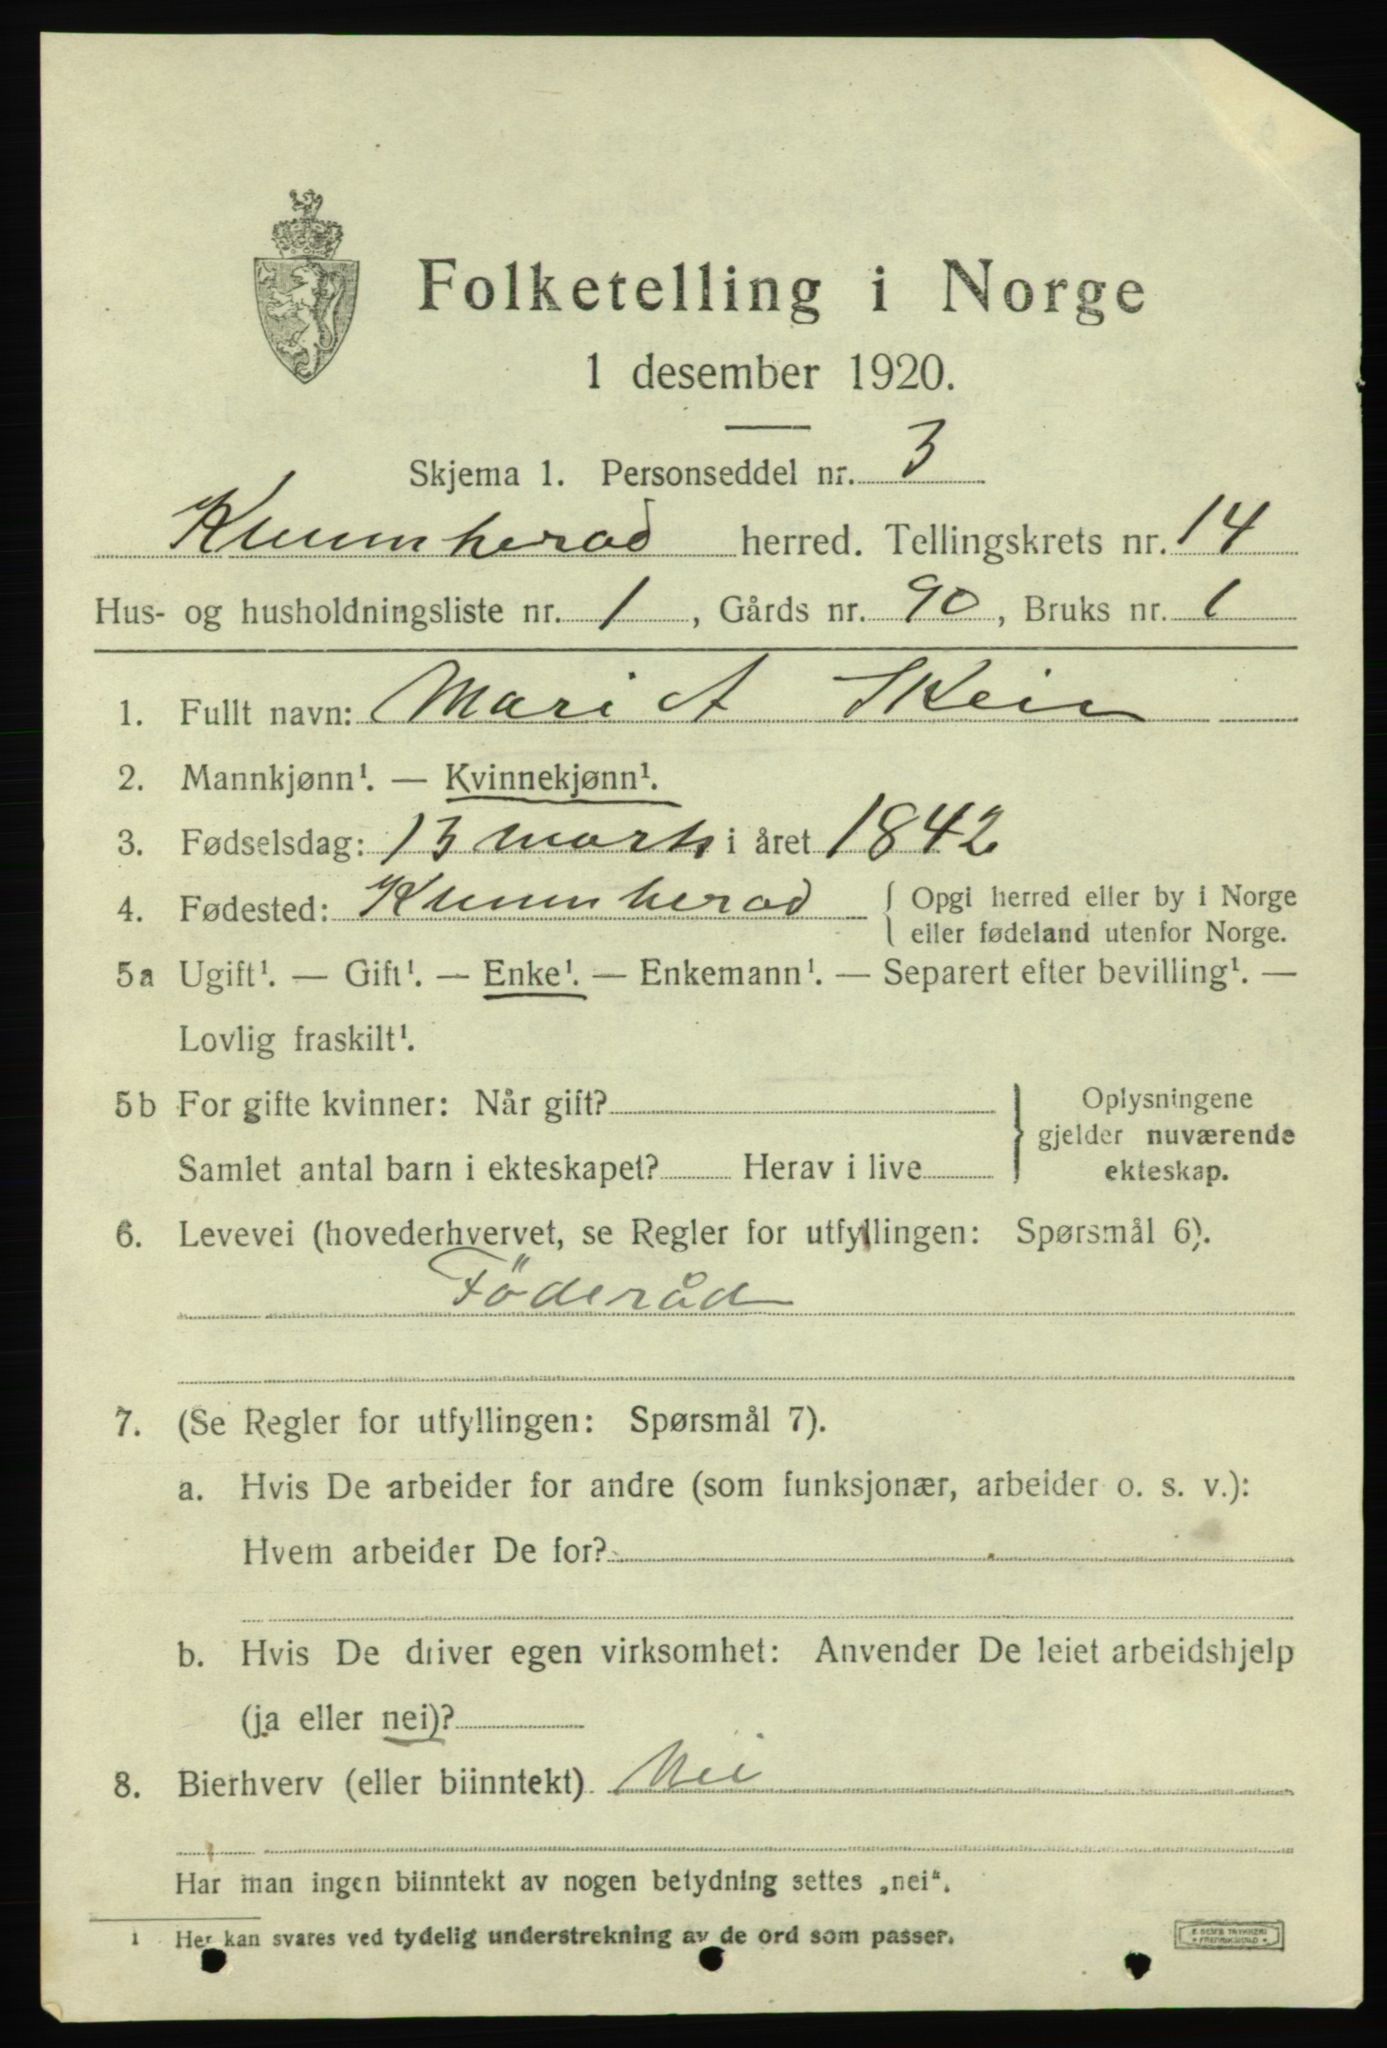 Folketelling i Norge
1 desember 1920.
Skjema 1. Personseddel nr. 3
Kvinnherad herred. Tellingskrets nr. 14
Hus- og husholdningsliste nr. 1, Gårds nr. 90, Bruks nr. 1
1. Fullt navn: Mari A Skeie
2. Mannkjønn¹. — Kvinnekjønn¹.
3. Fødselsdag: 13 marts i året 1842
4. Fødested: Kvinnherad { Opgi herred eller by i Norge
eller fødeland utenfor Norge.
5a Ugift¹. — Gift¹. — Enke¹. — Enkemann¹. — Separert efter bevilling¹. —
Lovlig fraskilt¹.
5b For gifte kvinner: Når gift? } Oplysningene
gjelder nuværende
Samlet antal barn i ekteskapet? Herav i live ekteskap.
6. Levevei (hovederhvervet, se Regler for utfyllingen: Spørsmål 6).
Föderåd
7. (Se Regler for utfyllingen: Spørsmål 7).
a. Hvis De arbeider for andre (som funksjonær, arbeider o. s. v.):
Hvem arbeider De for?
b. Hvis De driver egen virksomhet: Anvender De leiet arbeidshjelp
(ja eller nei)?
8. Bierhverv (eller biinntekt) Nei
Har man ingen biinntekt av nogen betydning settes „nei“.
1 Her kan svares ved tydelig understrekning av de ord som passer.